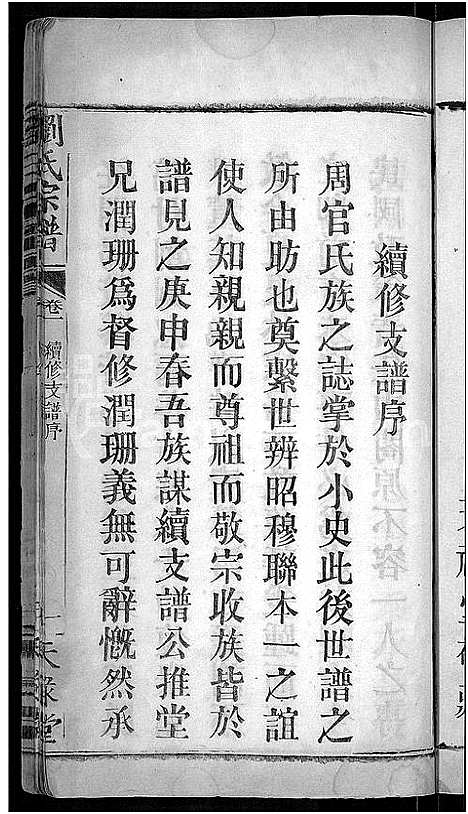 續修支譜序
周官氏族之誌掌於小史此後世譜之
所由昉也奠繫世辨昭穆聯本一之誼
使人知親親而尊祖而敬宗收族皆於
譜見之庚申春吾族謀續支譜公推堂
兄潤珊為督修潤珊義無可辭慨然承
劉氏宗譜
卷一
續修支譜序
天祿堂